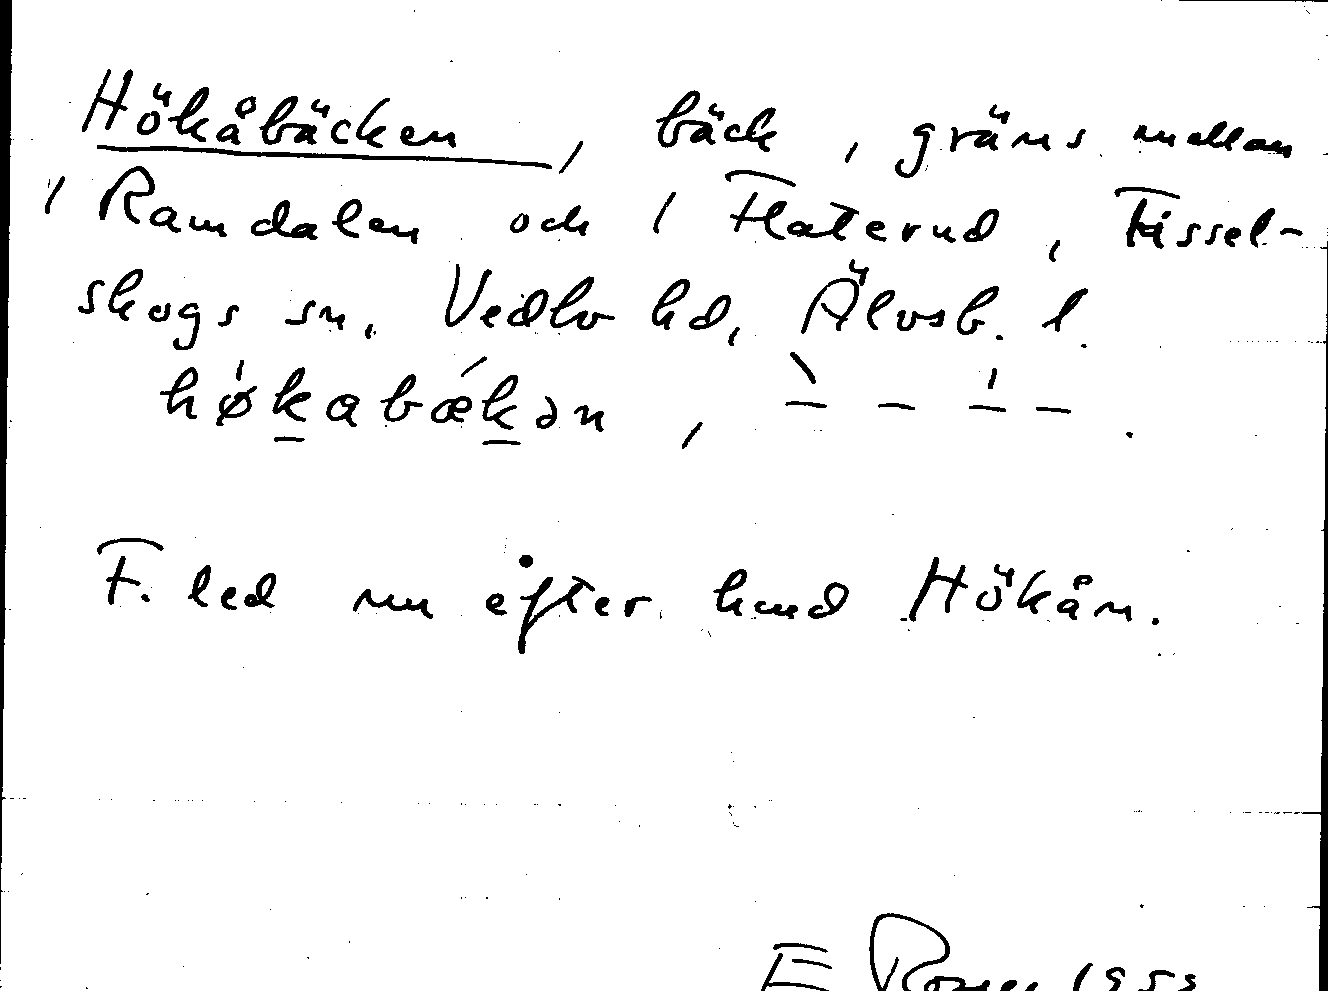 Hökåbäcken, bäck, gräns mellan
/ Ramdalen och / Flaterud, Tissel-
skogs sn, Vedbo hd, Älvsb. l.
hø̀kabǽkən, – – – – .
F. led nu efter hmd Hökån.
E Rosen